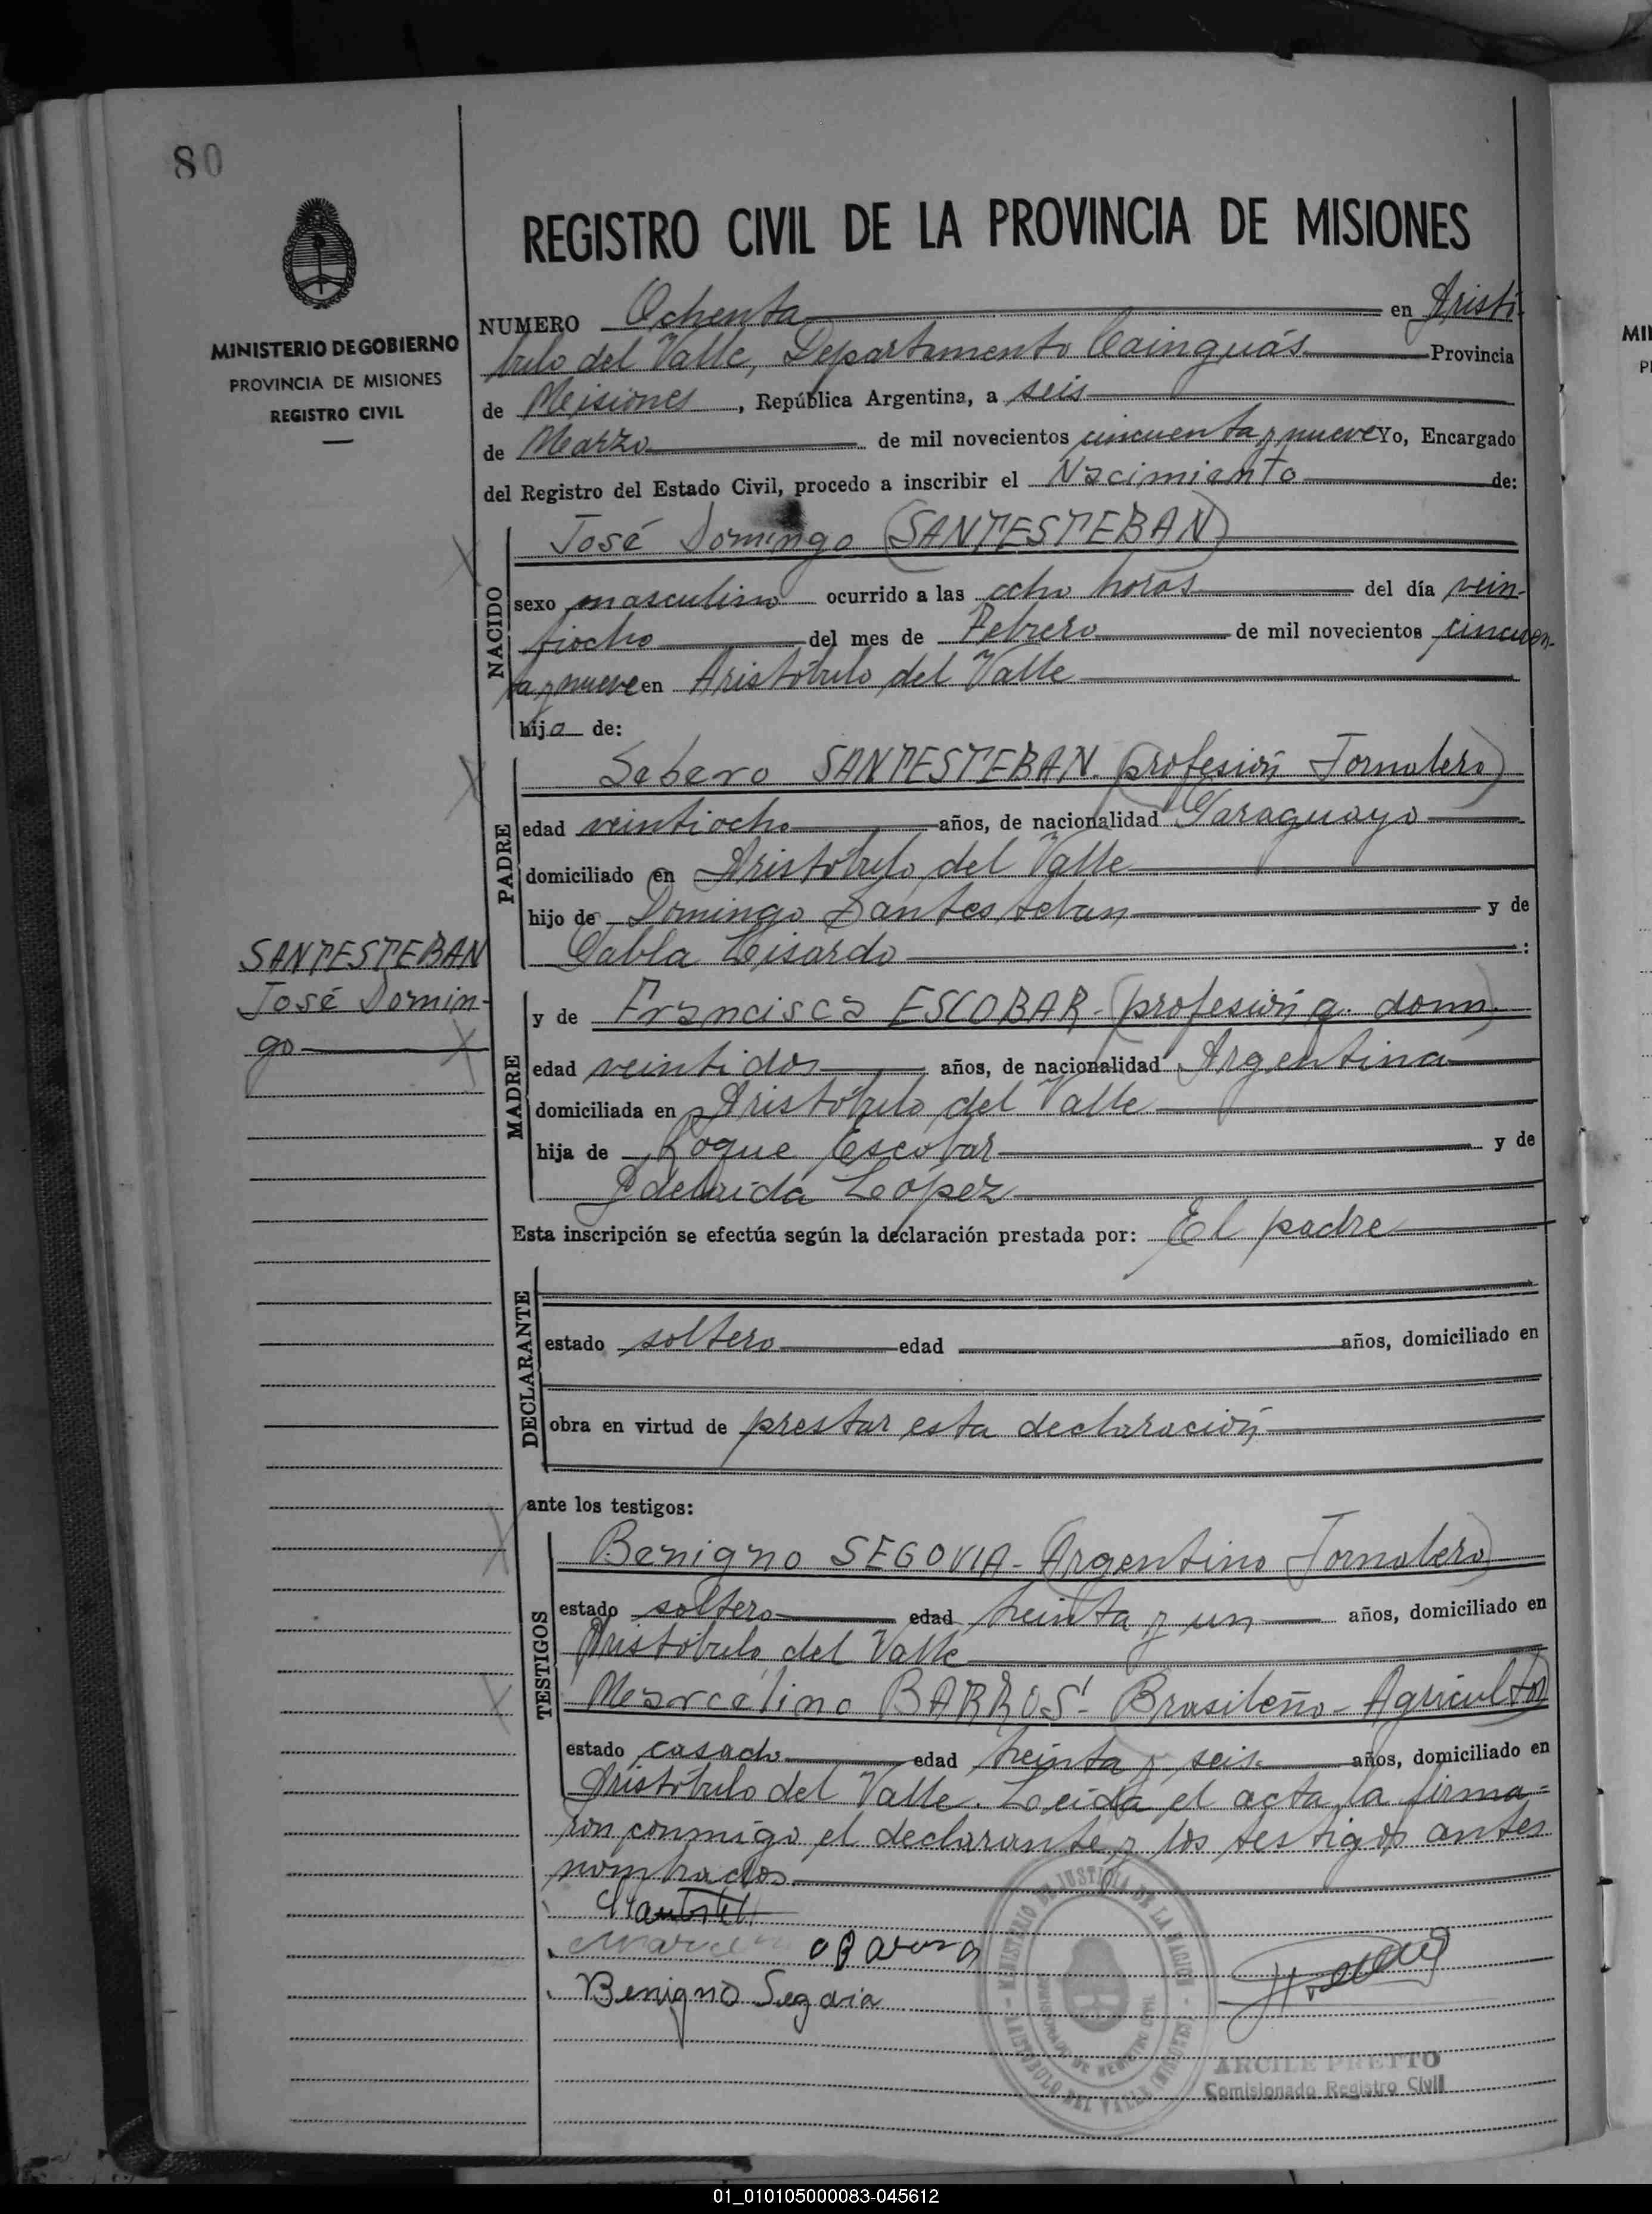 80
MINISTERIO DE GOBIERNO
PROVINCIA DE MISIONES
REGISTRO CIVIL
REGISTRO CIVIL DE LA PROVINCIA DE MISIONES
NUMERO Ochenta en Aristó-
bulo del Valle, Departamento Cainguás Provincia
de Misiones, República Argentina, a seis
de Marzo de mil novecientos cincuenta y nueve Yo, Encargado
del Registro del Estado Civil, procedo a inscribir el Nacimiento de:
NACIDO
José Domingo (SANTESTEBAN)
sexo masculino ocurrido a las ocho horas del día vein-
tiocho del mes de Febrero de mil novecientos cincuen-
ta y nueve en Aristóbulo del Valle
hijo de:
PADRE
Sebero SANTESTEBAN. (profesión Jornalero)
edad veintiocho años, de nacionalidad Paraguayo
domiciliado en Aristóbulo del Valle
hijo de Domingo Santesteban y de
Pabla Lisardo :
SANTESTEBAN
José Domin-
go
MADRE
y de Francisca ESCOBAR - (profesión q. dom.)
edad veintidos años, de nacionalidad Argentina
domiciliada en Aristóbulo del Valle
hija de Roque Escobar y de
Adelaida López
Esta inscripción se efectúa según la declaración prestada por: El padre
DECLARANTE
estado soltero edad años, domiciliado en
obra en virtud de prestar esta declaración
ante los testigos:
TESTIGOS
Benigno SEGOVIA - (Argentino Jornalero)
estado soltero edad treinta y un años, domiciliado en
Aristóbulo del Valle
Marcelino BARROS - (Brasileño - Agricultor)
estado casado edad treinta y seis años, domiciliado en
Aristóbulo del Valle. Leída el acta, la firma=
ron conmigo el declarante y los testigos antes
nombrados.
Benigno Segovia
MINISTERIO DE JUSTICIA DE LA NACION
ARISTOBULO DEL VALLE (MISIONES)
ARCILE PRETTO
Comisionado Registro Civil
01_010105000083-045612